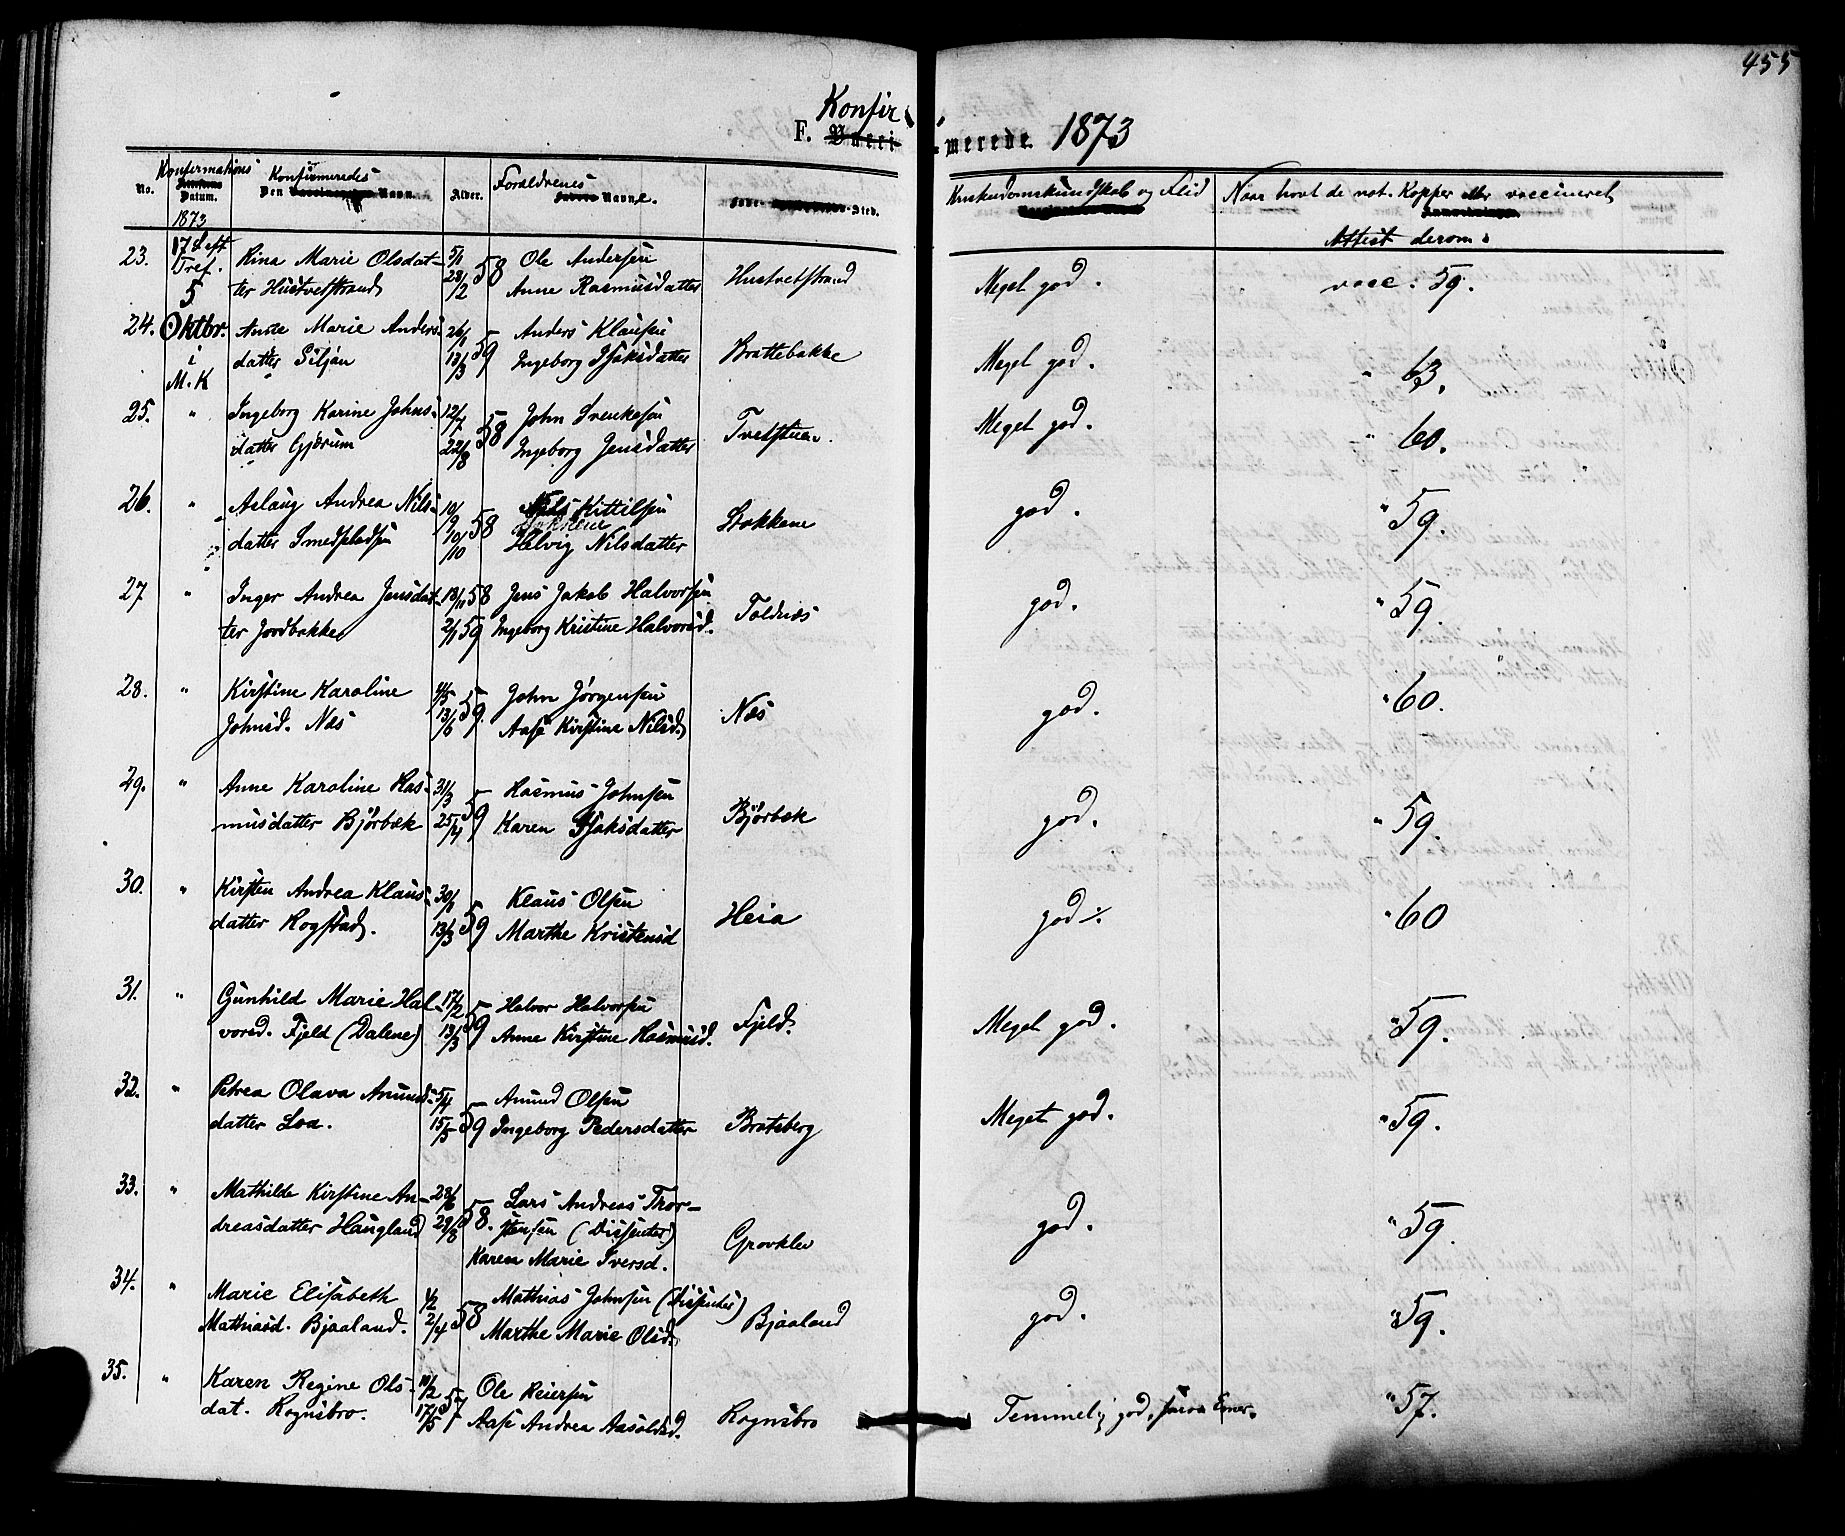 455
Konfir
F. Vacci
merede. 1873
No. Konfirmations Datum. Den Konfirmeredes Navn. Alder. Forældrenes Navne. Sted.
Kristendomskundskab og Flid Naar havt de nat. Kopper eller vaccineret
Attest derom.
1873
17 Sept
23. Kina Marie Olsdat- 5/1 Ole Andersen
ter Hustvetstrand 28/2 58 Anne Rasmusdatter Hustvetstrand Meget god. vacc. 59.
5
24. Oktbr. Anne Marie Anders 26/1 Anders Klausen
i datter Siljan 13/3 59 Ingeborg Isaksdatter Brattebakke Meget god. " 63.
M. K
25. " Ingeborg Karine Johns- 12/7 58 John Svenkesen
datter Gjærum 22/8 Ingeborg Jensdatter Tvetstuen. Meget god. " 60.
26. " Aslaug Andrea Nils- 10/9 58 Nils Kittilsen
datter Smedpladsen 10/10 Helvig Nilsdatter Stokkene god. " 59.
27 " Inger Andrea Jensdat- 13/11 58 Jens Jakob Halvorsen
ter Jordbakke 2/1 59 Ingeborg Kristine Halvorsd. Toldnæs god. " 59.
28. " Kirstine Karoline 4/5 59. John Jørgensen
Johnsd. Næs 13/6 Aase Kirstine Nilsd. Næs god. " 60.
29. " Anne Karoline Ras- 31/3 59 Rasmus Johnsen
musdatter Bjørbæk 25/4 Karen Isaksdatter Bjørbæk god. " 59.
30. " Kirsten Andrea Klaus- 30/1 59 Klaus Olsen
datter Rogstad. 13/3 Marthe Kristensd Heia god. " 60
31. " Gunhild Marie Hal- 17/2 59 Halvor Halvorsen
vorsd. Fjeld (Dalene) 13/3 Anne Kirstine Rasmusd. Fjeld. Meget god. " 59.
32. " Petrea Olava Amunds- 5/4 59 Amund Olsen
datter Loa. 15/5 Ingeborg Pedersdatter Bratsberg Meget god. " 59.
33. " Mathilde Kirstine An- 28/6 58. Lars Andreas Thor-
dreasdatter Haugland 29/8 stensen (Dissenter)
Karen Marie Iversd. Grovklev god. " 59.
34. " Marie Elisabeth 1/2 58 Mathias Johnsen (Dissenter)
Mathiasd. Bjaaland. 2/4 Marthe Marie Olsd. Bjaaland god. " 59.
35. " Karen Regine Ols- 10/2 57 Ole Reiersen
dat. Rognsbro. 17/5 Aase Andrea Aasoldsd. Rognsbro Temmelig god, " 57.